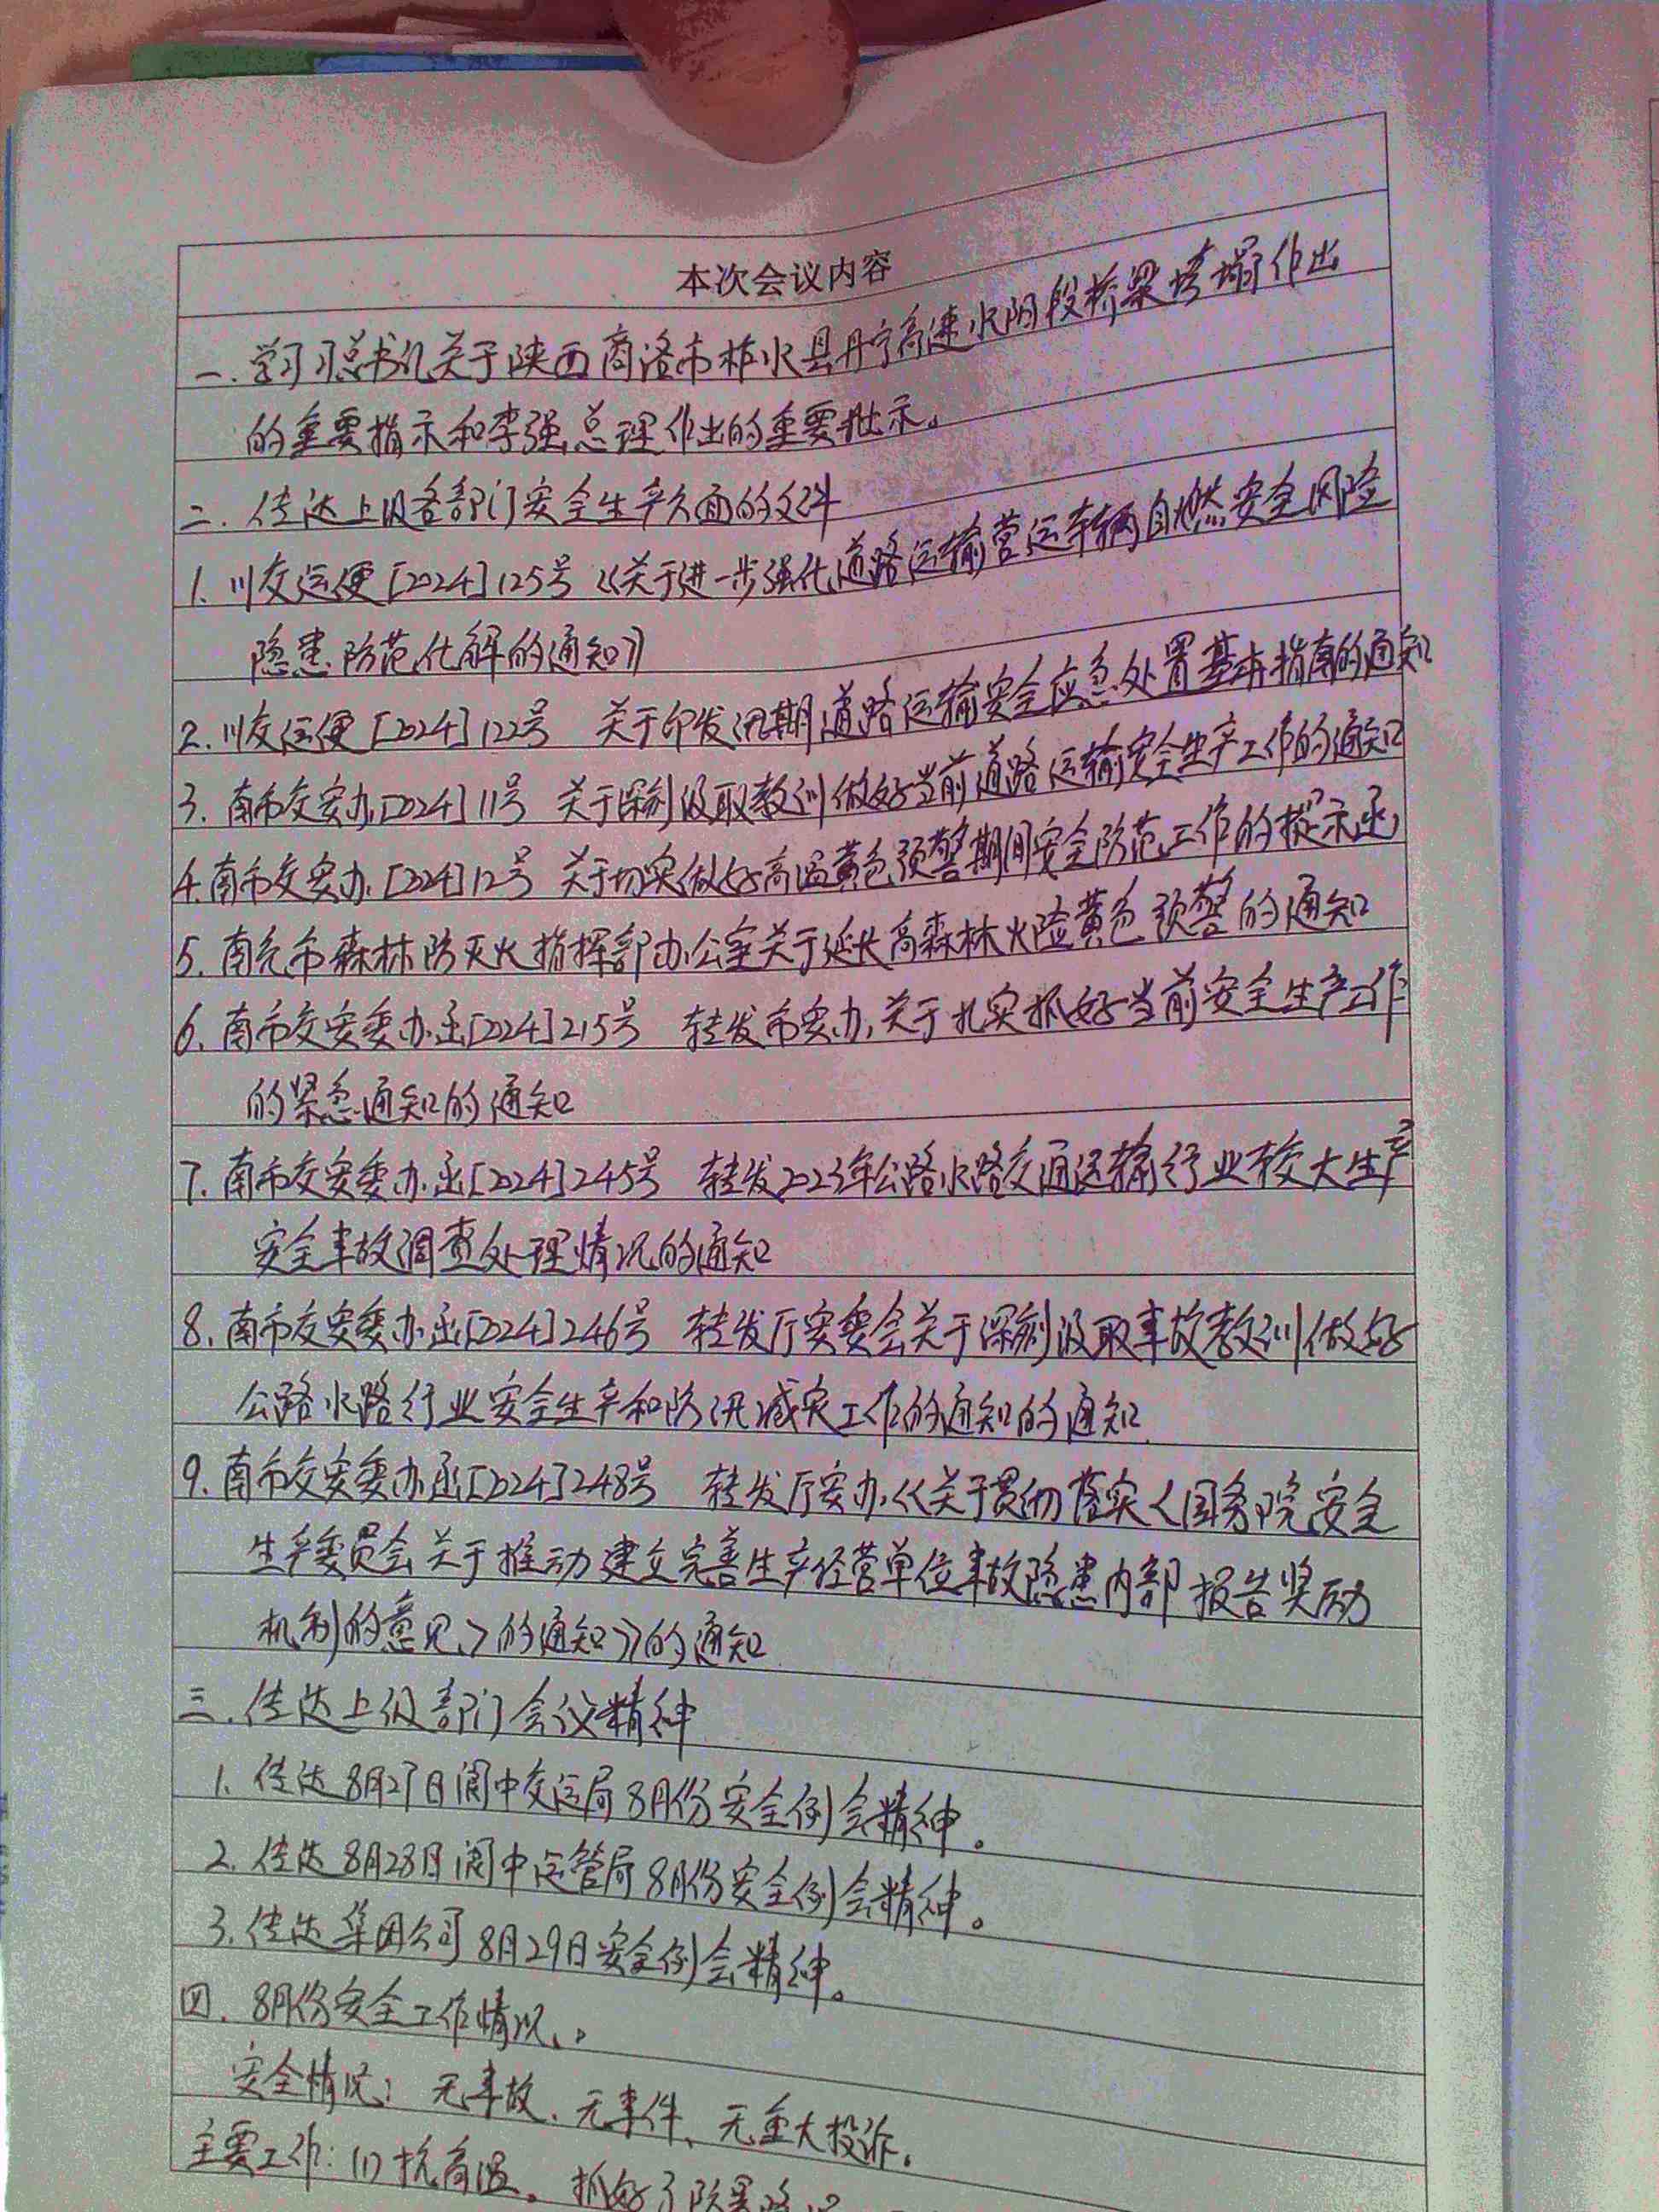 本次会议内容
一. 学习习总书记关于陕西商洛市柞水县丹宁高速水阴段桥梁垮塌作出
的重要指示和李强总理作出的重要批示。
二. 传达上级各部门安全生产方面的文件
1. 川交运便[2024]125号《关于进一步强化道路运输营运车辆自燃安全风险
隐患防范化解的通知》
2. 川交运便[2024]122号 关于印发汛期道路运输安全应急处置基本指南的通知
3. 南市交安办[2024]11号 关于深刻汲取教训做好当前道路运输安全生产工作的通知
4. 南市交安办[2024]12号 关于切实做好高温黄色预警期间安全防范工作的提示函
5. 南充市森林防灭火指挥部办公室关于延长高森林火险黄色预警的通知
6. 南市交安委办函[2024]215号 转发市安办关于扎实抓好当前安全生产工作
的紧急通知的通知
7. 南市交安委办函[2024]245号 转发2023年公路水路交通运输行业较大生产
安全事故调查处理情况的通知
8. 南市交安委办函[2024]246号 转发厅安委会关于深刻汲取事故教训做好
公路水路行业安全生产和防汛减灾工作的通知的通知
9. 南市交安委办函[2024]248号 转发厅安办《关于贯彻落实<国务院安全
生产委员会关于推动建立完善生产经营单位事故隐患内部报告奖励
机制的意见>的通知》的通知
三. 传达上级部门会议精神
1. 传达8月27日阆中交运局8月份安全例会精神。
2. 传达8月28日阆中运管局8月份安全例会精神。
3. 传达集团公司8月29日安全例会精神。
四. 8月份安全工作情况。
安全情况: 无事故、无事件、无重大投诉。
主要工作: (1) 抗高温。抓好了防暑降温